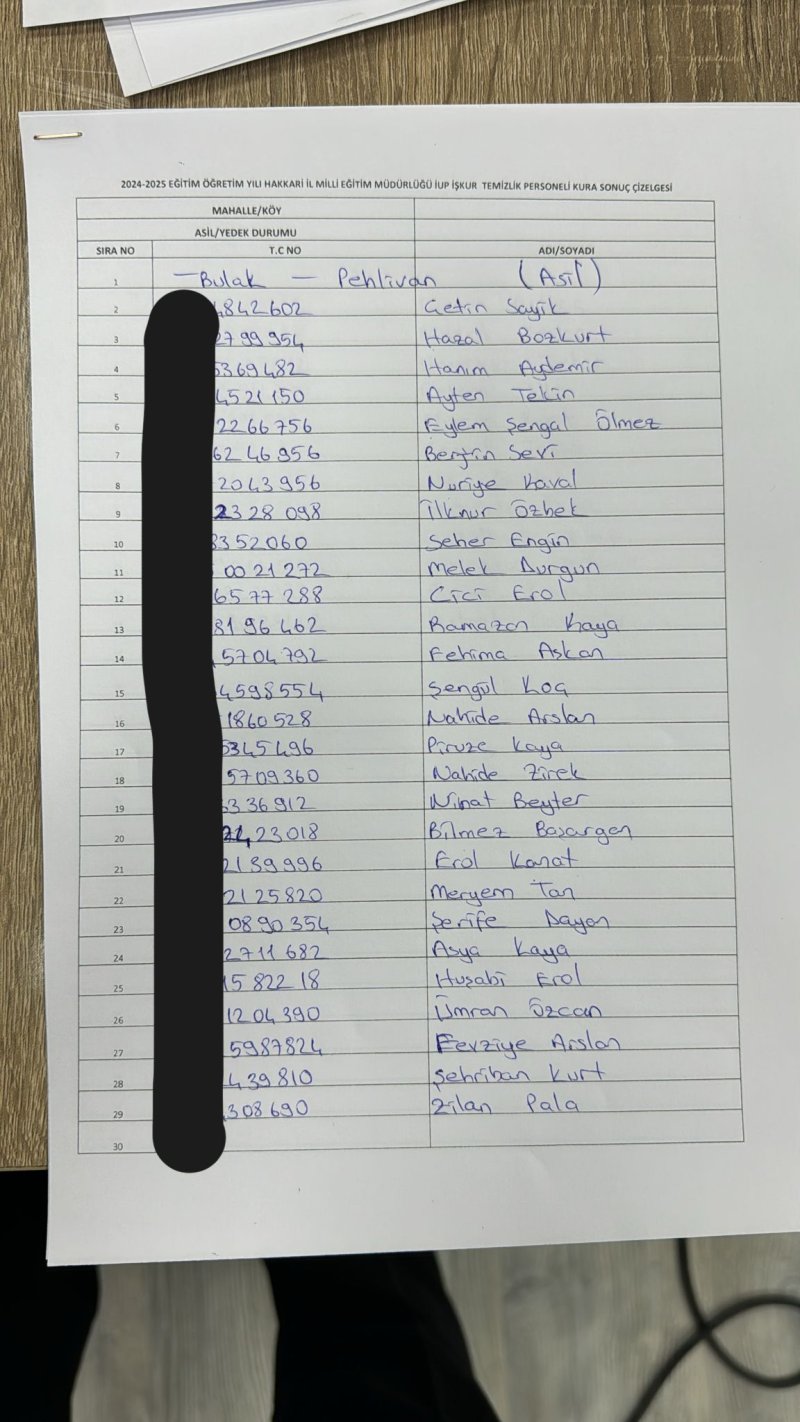 2024-2025 EĞİTİM ÖĞRETİM YILI HAKKARİ İL MİLLİ EĞİTİM MÜDÜRLÜĞÜ İUP İŞKUR TEMİZLİK PERSONELİ KURA SONUÇ ÇİZELGESİ
MAHALLE/KÖY
ASİL/YEDEK DURUMU
SIRA NO T.C NO ADI/SOYADI
1 — Bulak — Pehlivan (Asil)
2 4842602 Çetin Sayik
3 2799954 Hazal Bozkurt
4 5369482 Hanım Aydemir
5 4521150 Ayten Tekin
6 2266756 Eylem Şengal Ölmez
7 6246956 Berfin Sevi
8 2043956 Nuriye Kaval
9 2328 098 İlknur Özbek
10 3352060 Seher Engin
11 0021272 Melek Durgun
12 6577 288 Cici Erol
13 8196 462 Ramazan Kaya
14 5704792 Fehima Askan
15 4598554 Şengül Koç
16 1860528 Nahide Arslan
17 5345496 Piruze Kaya
18 5709360 Nahide Zirek
19 6336912 Nihat Beyter
20 23018 Bilmez Başargan
21 2139996 Erol Kanat
22 2125820 Meryem Tan
23 0890354 Şerife Dayan
24 2711682 Asya Kaya
25 1582218 Huşabi Erol
26 1204390 Ümran Özcan
27 5987824 Fevziye Arslan
28 439810 Şehriban Kurt
29 308690 Zilan Pala
30